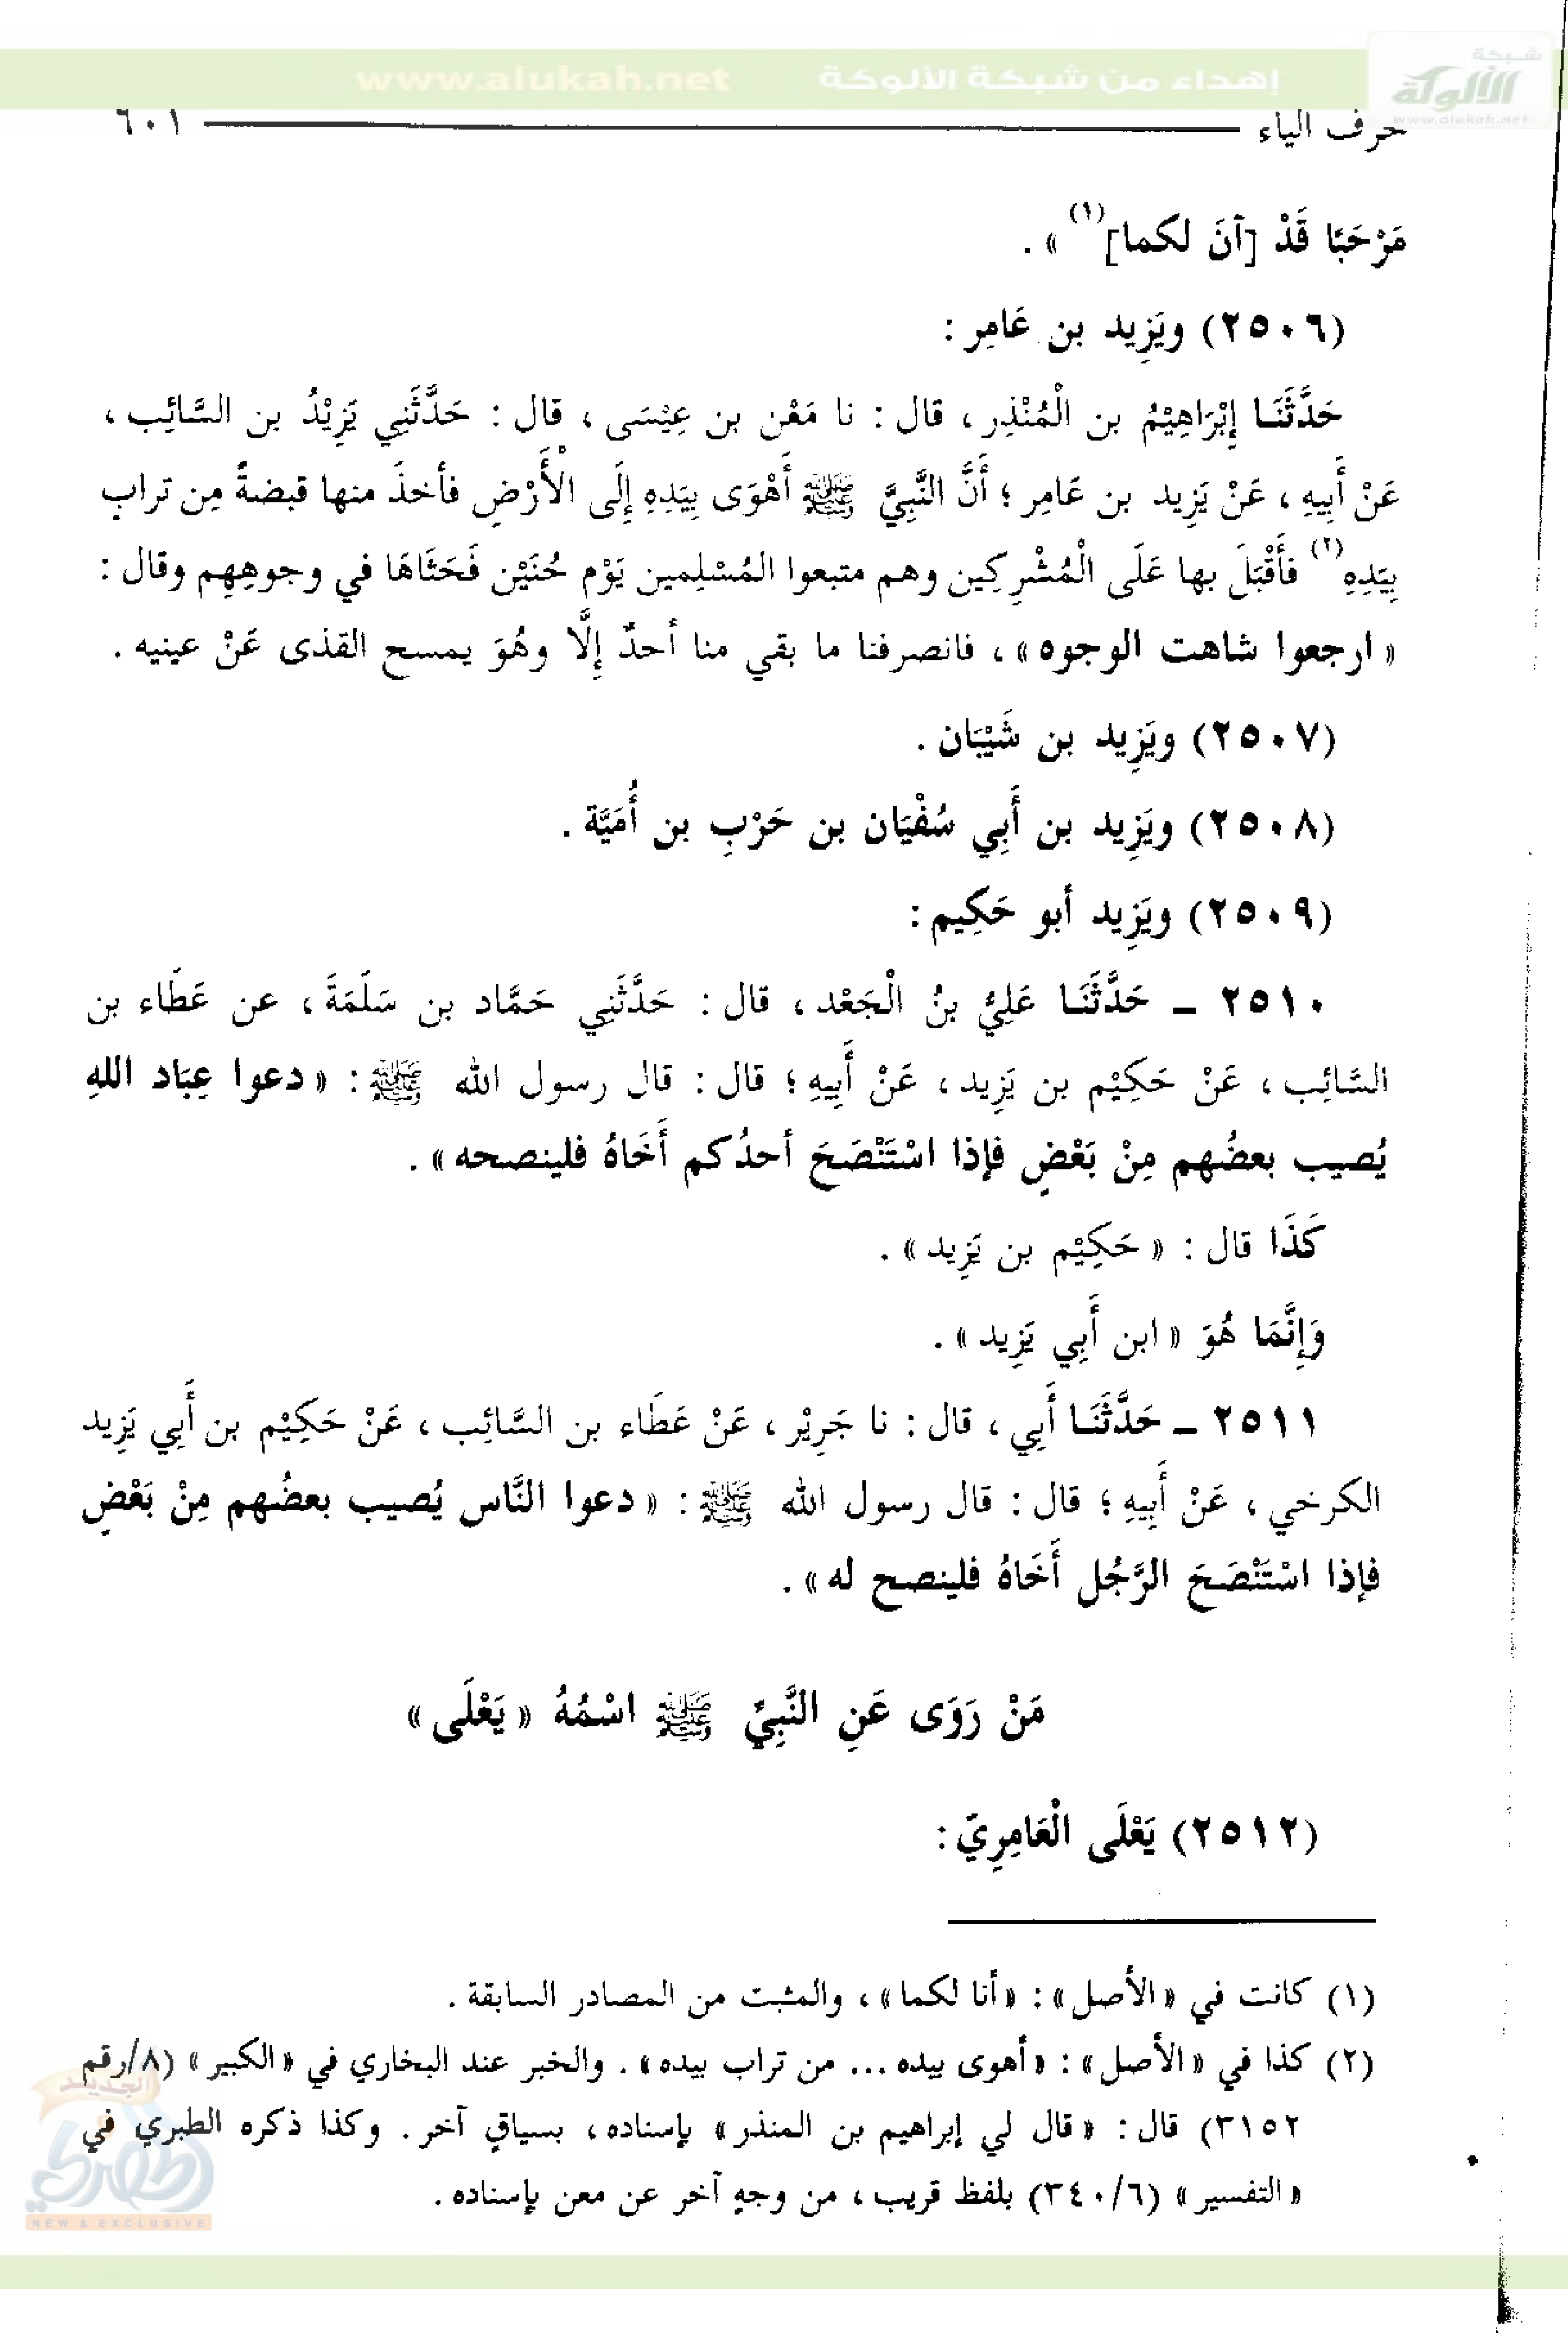 www.alukah.net إهداء من شبكة الألوكة
شبكة
الألوكة
www.alukah.net
حرف الياء ٦٠١
مَرْحَبًا قَدْ [آنَ لكما](١) » .
(٢٥٠٦) ويَزِيد بن عَامِر :
حَدَّثَنَا إِبْرَاهِيْمُ بن الْمُنْذِر ، قال : نا مَعْن بن عِيْسَى ، قال : حَدَّثَنِي يَزِيْدُ بن السَّائِب ،
عَنْ أَبِيهِ ، عَنْ يَزِيد بن عَامِر ؛ أَنَّ النَّبِيَّ ﷺ أَهْوَى بِيَدِهِ إِلَى الْأَرْضِ فأخذَ منها قبضةً مِن ترابٍ
بِيَدِهِ (٢) فأَقْبَلَ بها عَلَى الْمُشْرِكِين وهم متبعوا المُسْلِمين يَوْم حُنَيْن فَحَثَاهَا في وجوهِهِم وقال :
« ارجعوا شاهت الوجوه » ، فانصرفنا ما بقي منا أحدٌ إِلَّا وهُوَ يمسح القذى عَنْ عينيه .
(٢٥٠٧) ويَزِيد بن شَيْبَان .
(٢٥٠٨) ويَزِيد بن أَبِي سُفْيَان بن حَرْبِ بن أُمَيَّة .
(٢٥٠٩) ويَزِيد أبو حَكِيم :
٢٥١٠ ـ حَدَّثَنَا عَلِيُّ بنُ الْجَعْد ، قال : حَدَّثَنِي حَمَّاد بن سَلَمَةَ ، عن عَطَاء بن
السَّائِب ، عَنْ حَكِيْم بن يَزِيد ، عَنْ أَبِيهِ ؛ قال : قال رسول الله ﷺ : « دعوا عِبَاد اللهِ
يُصيب بعضُهم مِنْ بَعْضٍ فإذا اسْتَنْصَحَ أحدُكم أَخَاهُ فلينصحه » .
كَذَا قال : « حَكِيْم بن يَزِيد » .
وَإِنَّمَا هُوَ « ابن أَبِي يَزِيد » .
٢٥١١ ـ حَدَّثَنَا أَبِي ، قال : نا جَرِيْر ، عَنْ عَطَاء بن السَّائِب ، عَنْ حَكِيْم بن أَبِي يَزِيد
الكرخي ، عَنْ أَبِيهِ ؛ قال : قال رسول الله ﷺ : « دعوا النَّاس يُصيب بعضُهم مِنْ بَعْضٍ
فإذا اسْتَنْصَحَ الرَّجُل أَخَاهُ فلينصح له » .
مَنْ رَوَى عَنِ النَّبِيِّ ﷺ اسْمُهُ « يَعْلَى »
(٢٥١٢) يَعْلَى الْعَامِرِيّ :
(١) كانت في « الأصل » : « أنا لكما » ، والمثبت من المصادر السابقة .
(٢) كذا في « الأصل » : « أهوى بيده ... من تراب بيده » . والخبر عند البخاري في « الكبير » (٨/رقم
٣١٥٢) قال : « قال لي إبراهيم بن المنذر » بإسناده ، بسياقٍ آخر . وكذا ذكره الطبري في
« التفسير » (٣٤٠/٦) بلفظ قريب ، من وجهٍ آخر عن معن بإسناده .
NEW & EXCLUSIVE